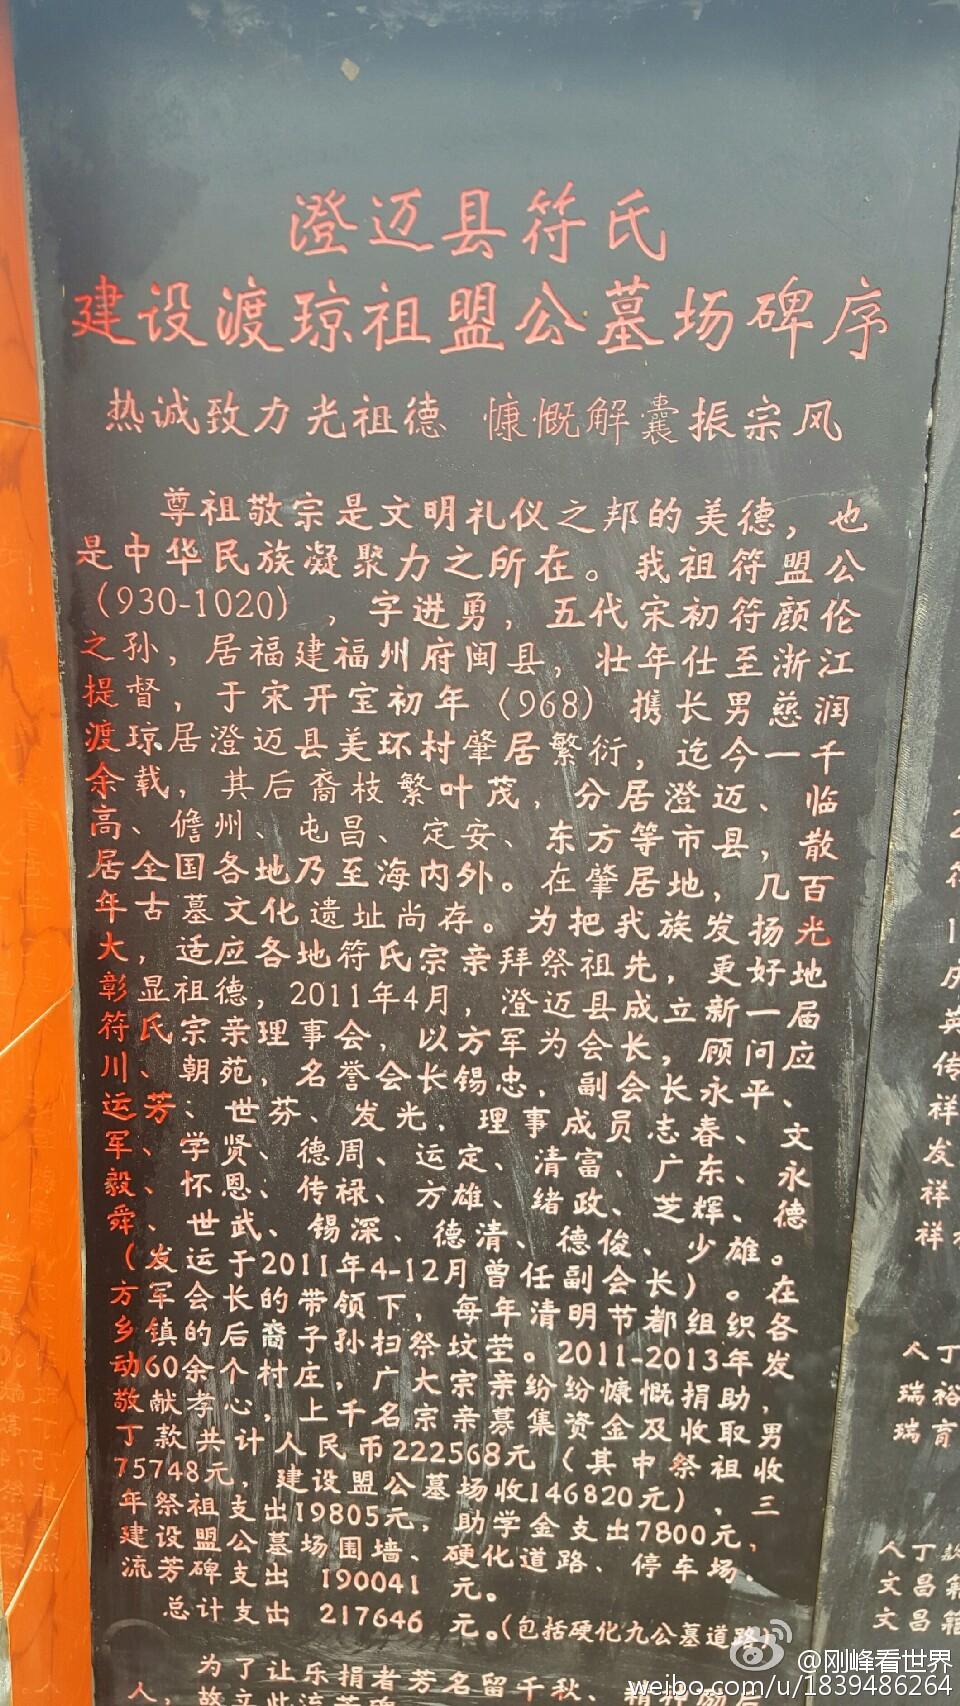 澄迈县符氏
建设渡琼祖盟公墓场碑序
热诚致力光祖德 慷慨解囊振宗风
尊祖敬宗是文明礼仪之邦的美德，也
是中华民族凝聚力之所在。我祖符盟公
（930-1020），字进勇，五代宋初符顾伦
之孙，居福建福州府闽县，壮年仕至浙江
提督，于宋开宝初年（968）携长男慈润
渡琼居澄迈县美环村肇居繁衍，迄今一千
余载，其后裔枝繁叶茂，分居澄迈、临
高、儋州、屯昌、定安、东方等市县，散
居全国各地乃至海内外。在肇居地，几百
年古墓文化遗址尚存。为把我族发扬光
大，适应各地符氏宗亲拜祭祖先，更好地
彰显祖德，2011年4月，澄迈县成立新一届
符氏宗亲理事会，以方军为会长，顾问应
川、朝苑，名誉会长锡忠，副会长永平、
运芳、世芬、发光，理事成员志春、文
军、学贤、德周、运定、清富、广东、永
毅、怀恩、传禄、方雄、绪政、芝辉、德
舜、世武、锡深、德清、德俊、少雄。
（发运于2011年4-12月曾任副会长）。在
方军会长的带领下，每年清明节都组织各
乡镇的后裔子孙扫祭坟茔。2011-2013年发
动60余个村庄，广大宗亲纷纷慷慨捐助，
敬献孝心，上千名宗亲募集资金及收取男
丁款共计人民币222568元（其中祭祖收
75748元，建设盟公墓场收146820元），三
年祭祖支出19805元，助学金支出7800元，
建设盟公墓场围墙、硬化道路、停车场、
流芳碑支出 190041 元。
总计支出 217646 元。（包括硬化九公墓道路）
为了让乐捐者芳名留千秋、
人
人丁
瑞裕
瑞育
人丁款
文昌籍
文昌籍
@刚峰看世界
weibo.com/u/1839486264